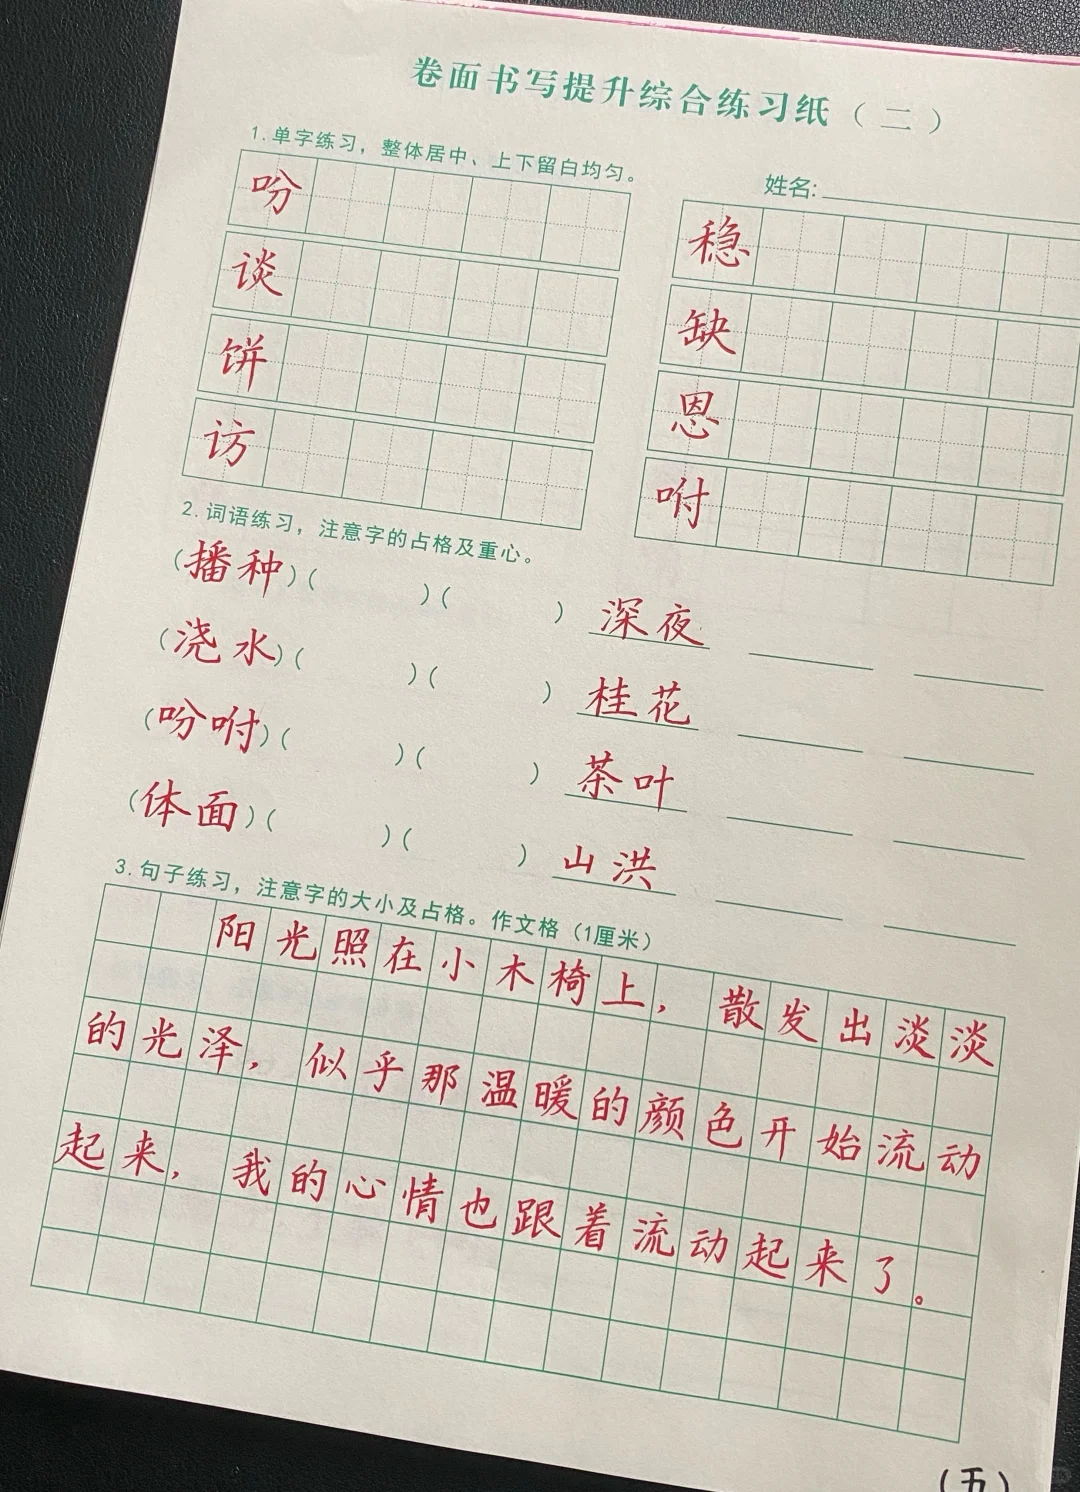 卷面书写提升综合练习纸（二）
1.单字练习，整体居中、上下留白均匀。
姓名:
吩
谈
饼
访
稳
缺
恩
咐
2.词语练习，注意字的占格及重心。
(播种)( )( ) 深夜
(浇水)( )( ) 桂花
(吩咐)( )( ) 茶叶
(体面)( )( ) 山洪
3.句子练习，注意字的大小及占格。作文格（1厘米）
阳光照在小木椅上，散发出淡淡
的光泽，似乎那温暖的颜色开始流动
起来，我的心情也跟着流动起来了。
(五)